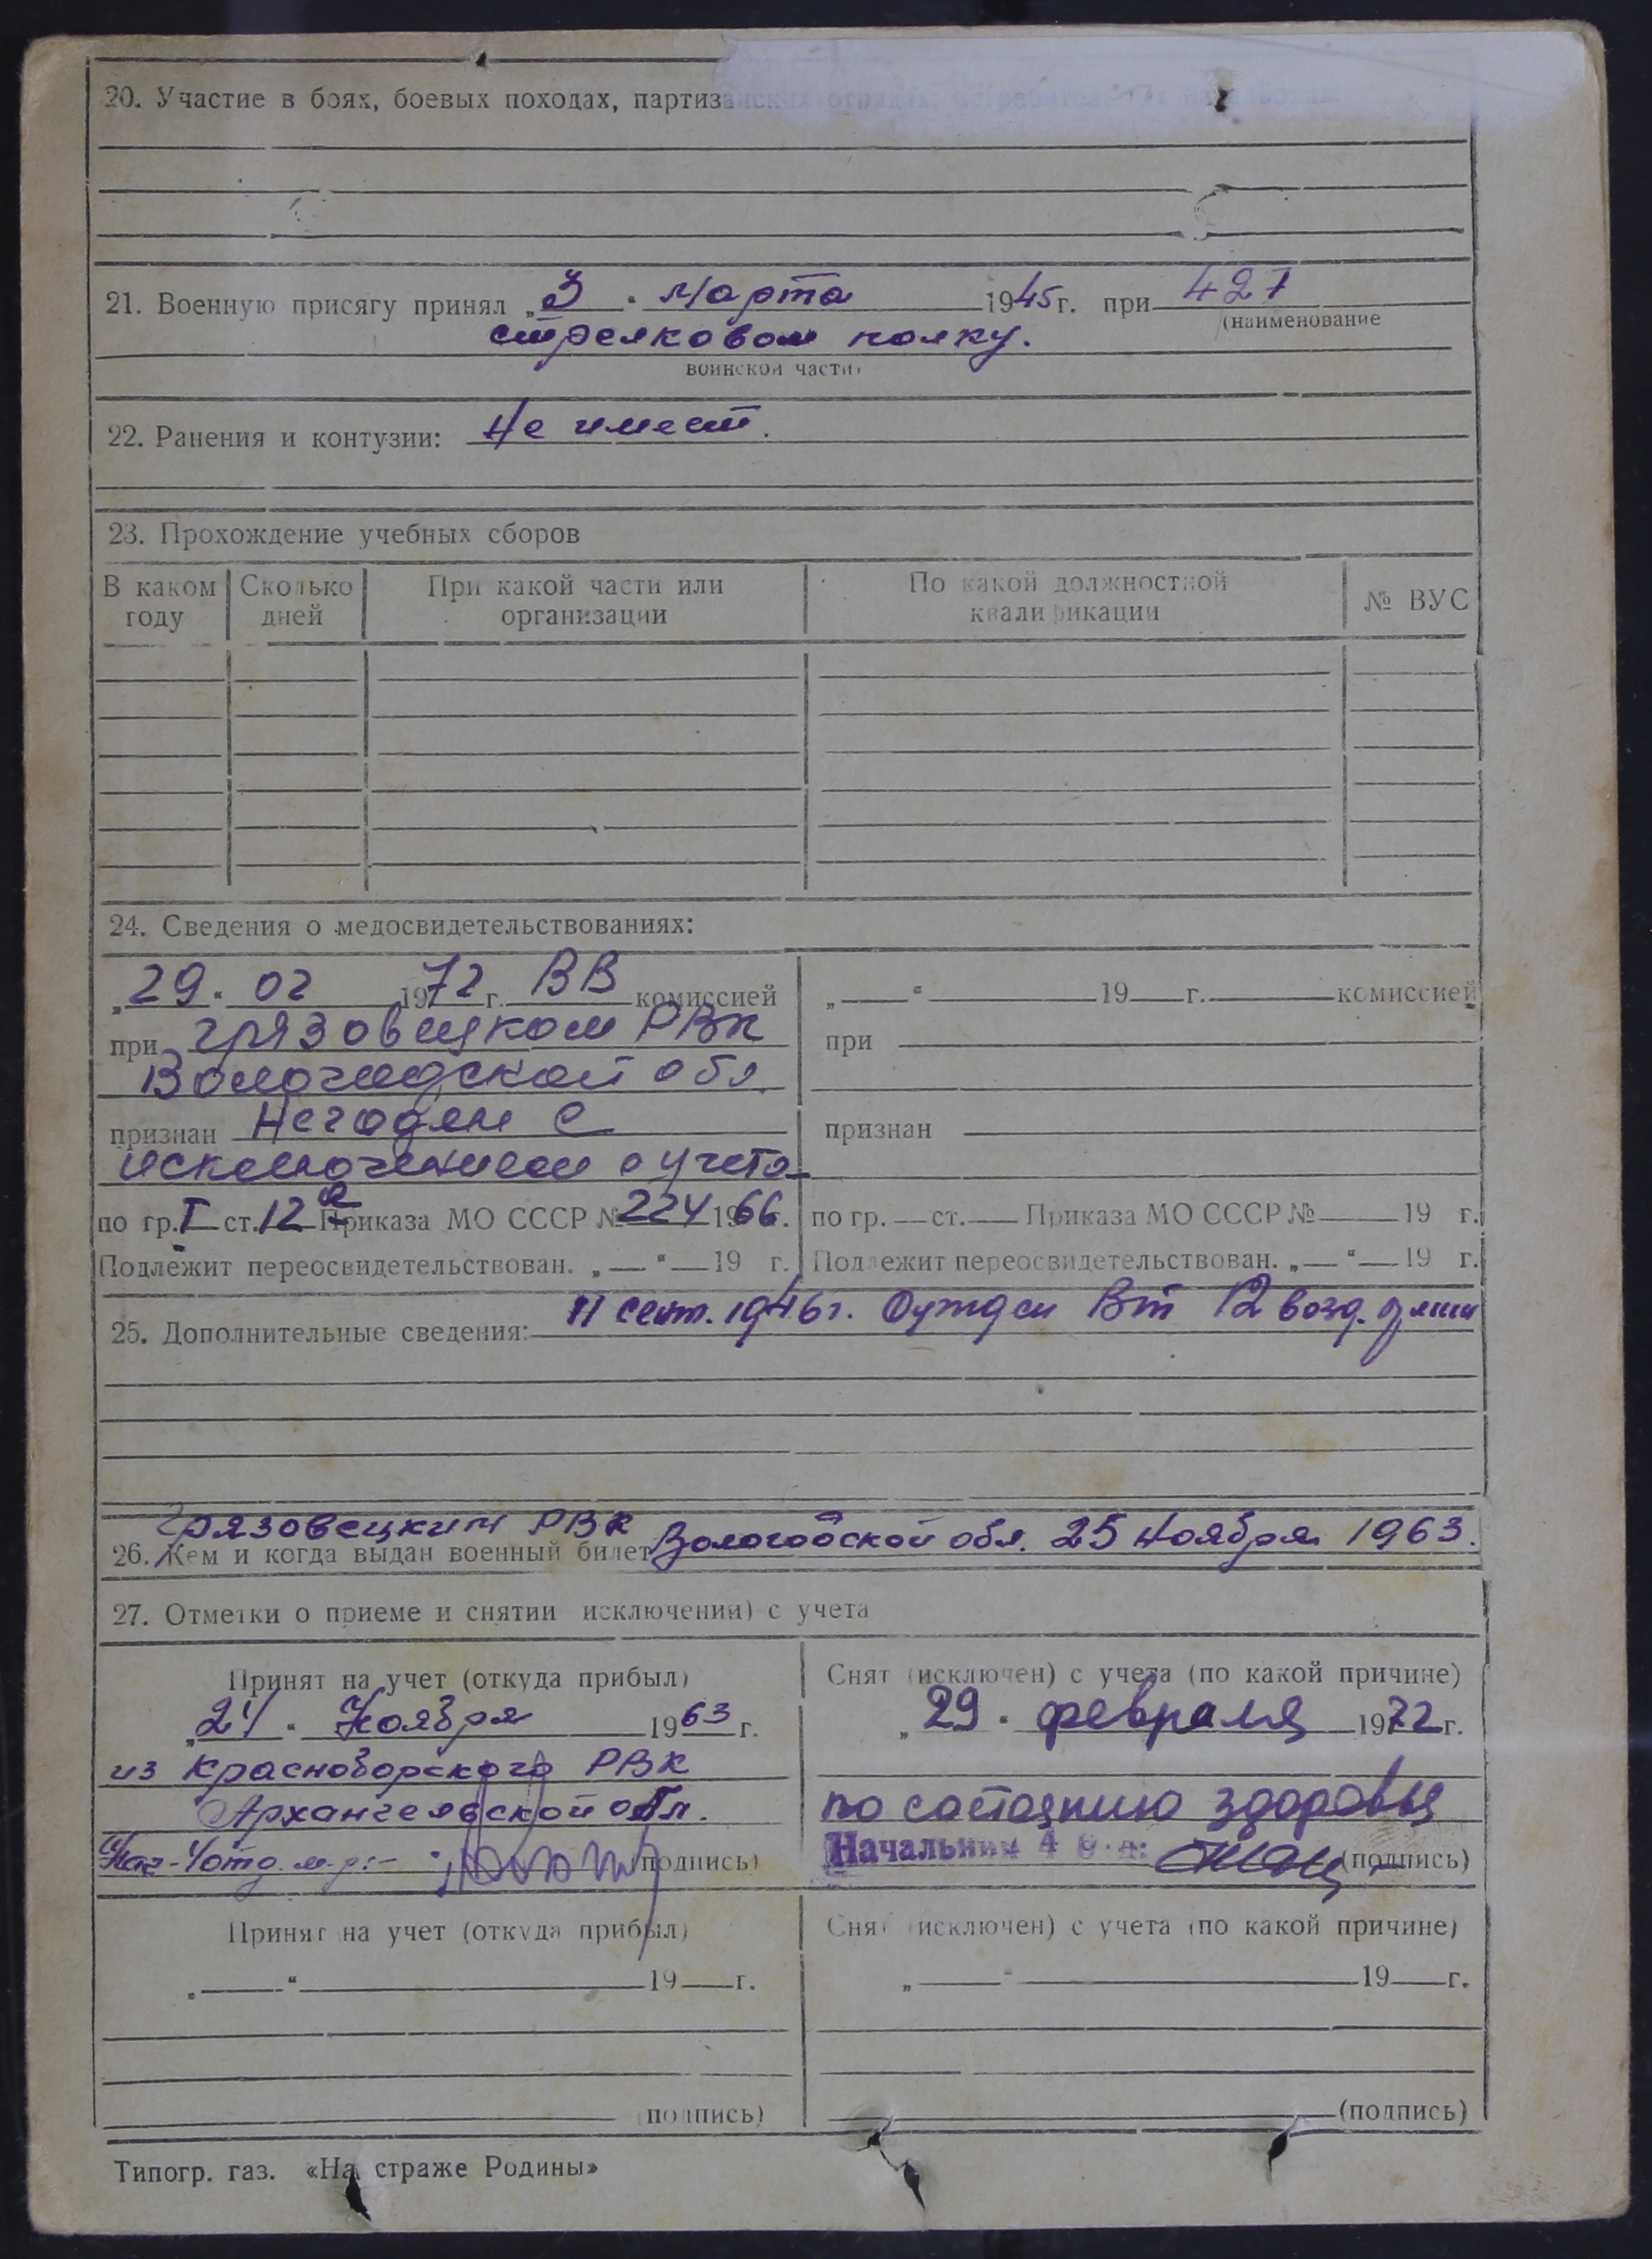 20. Участие в боях, боевых походах, партизанских отрядах,
21. Военную присягу принял „3“ марта 1945 г. при 427
(наименование
стрелковом полку.
воинской части)
22. Ранения и контузии: Не имеет.
23. Прохождение учебных сборов
В каком году Сколько дней При какой части или организации По какой должностной квалификации № ВУС
24. Сведения о медосвидетельствованиях:
„29“ 02 1972 г. ВВ комиссией
при Грязовецком РВК
Вологодской обл.
признан Негоден с
исключением с учета
по гр. I ст. 12а Приказа МО СССР № 224 1966 г.
Подлежит переосвидетельствован. „ “ 19 г.
„ “ 19 г. комиссией
при
признан
по гр. ст. Приказа МО СССР № 19 г.
Подлежит переосвидетельствован. „ “ 19 г.
25. Дополнительные сведения: 11 сент. 1946 г. Осужден ВТ 12 возд. армии
Грязовецким РВК
26. Кем и когда выдан военный билет Вологодской обл. 25 ноября 1963.
27. Отметки о приеме и снятии исключении) с учета
Принят на учет (откуда прибыл)
„24“ Ноября 1963 г.
из Красноборского РВК
Архангельской обл.
Нач. 4 отд. (подпись)
Снят (исключен) с учета (по какой причине)
„29“ февраля 1972 г.
по состоянию здоровья
Начальник 4 (подпись)
Принят на учет (откуда прибыл)
„ “ 19 г.
(подпись)
Снят (исключен) с учета (по какой причине)
„ “ 19 г.
(подпись)
Типогр. газ. «На страже Родины»